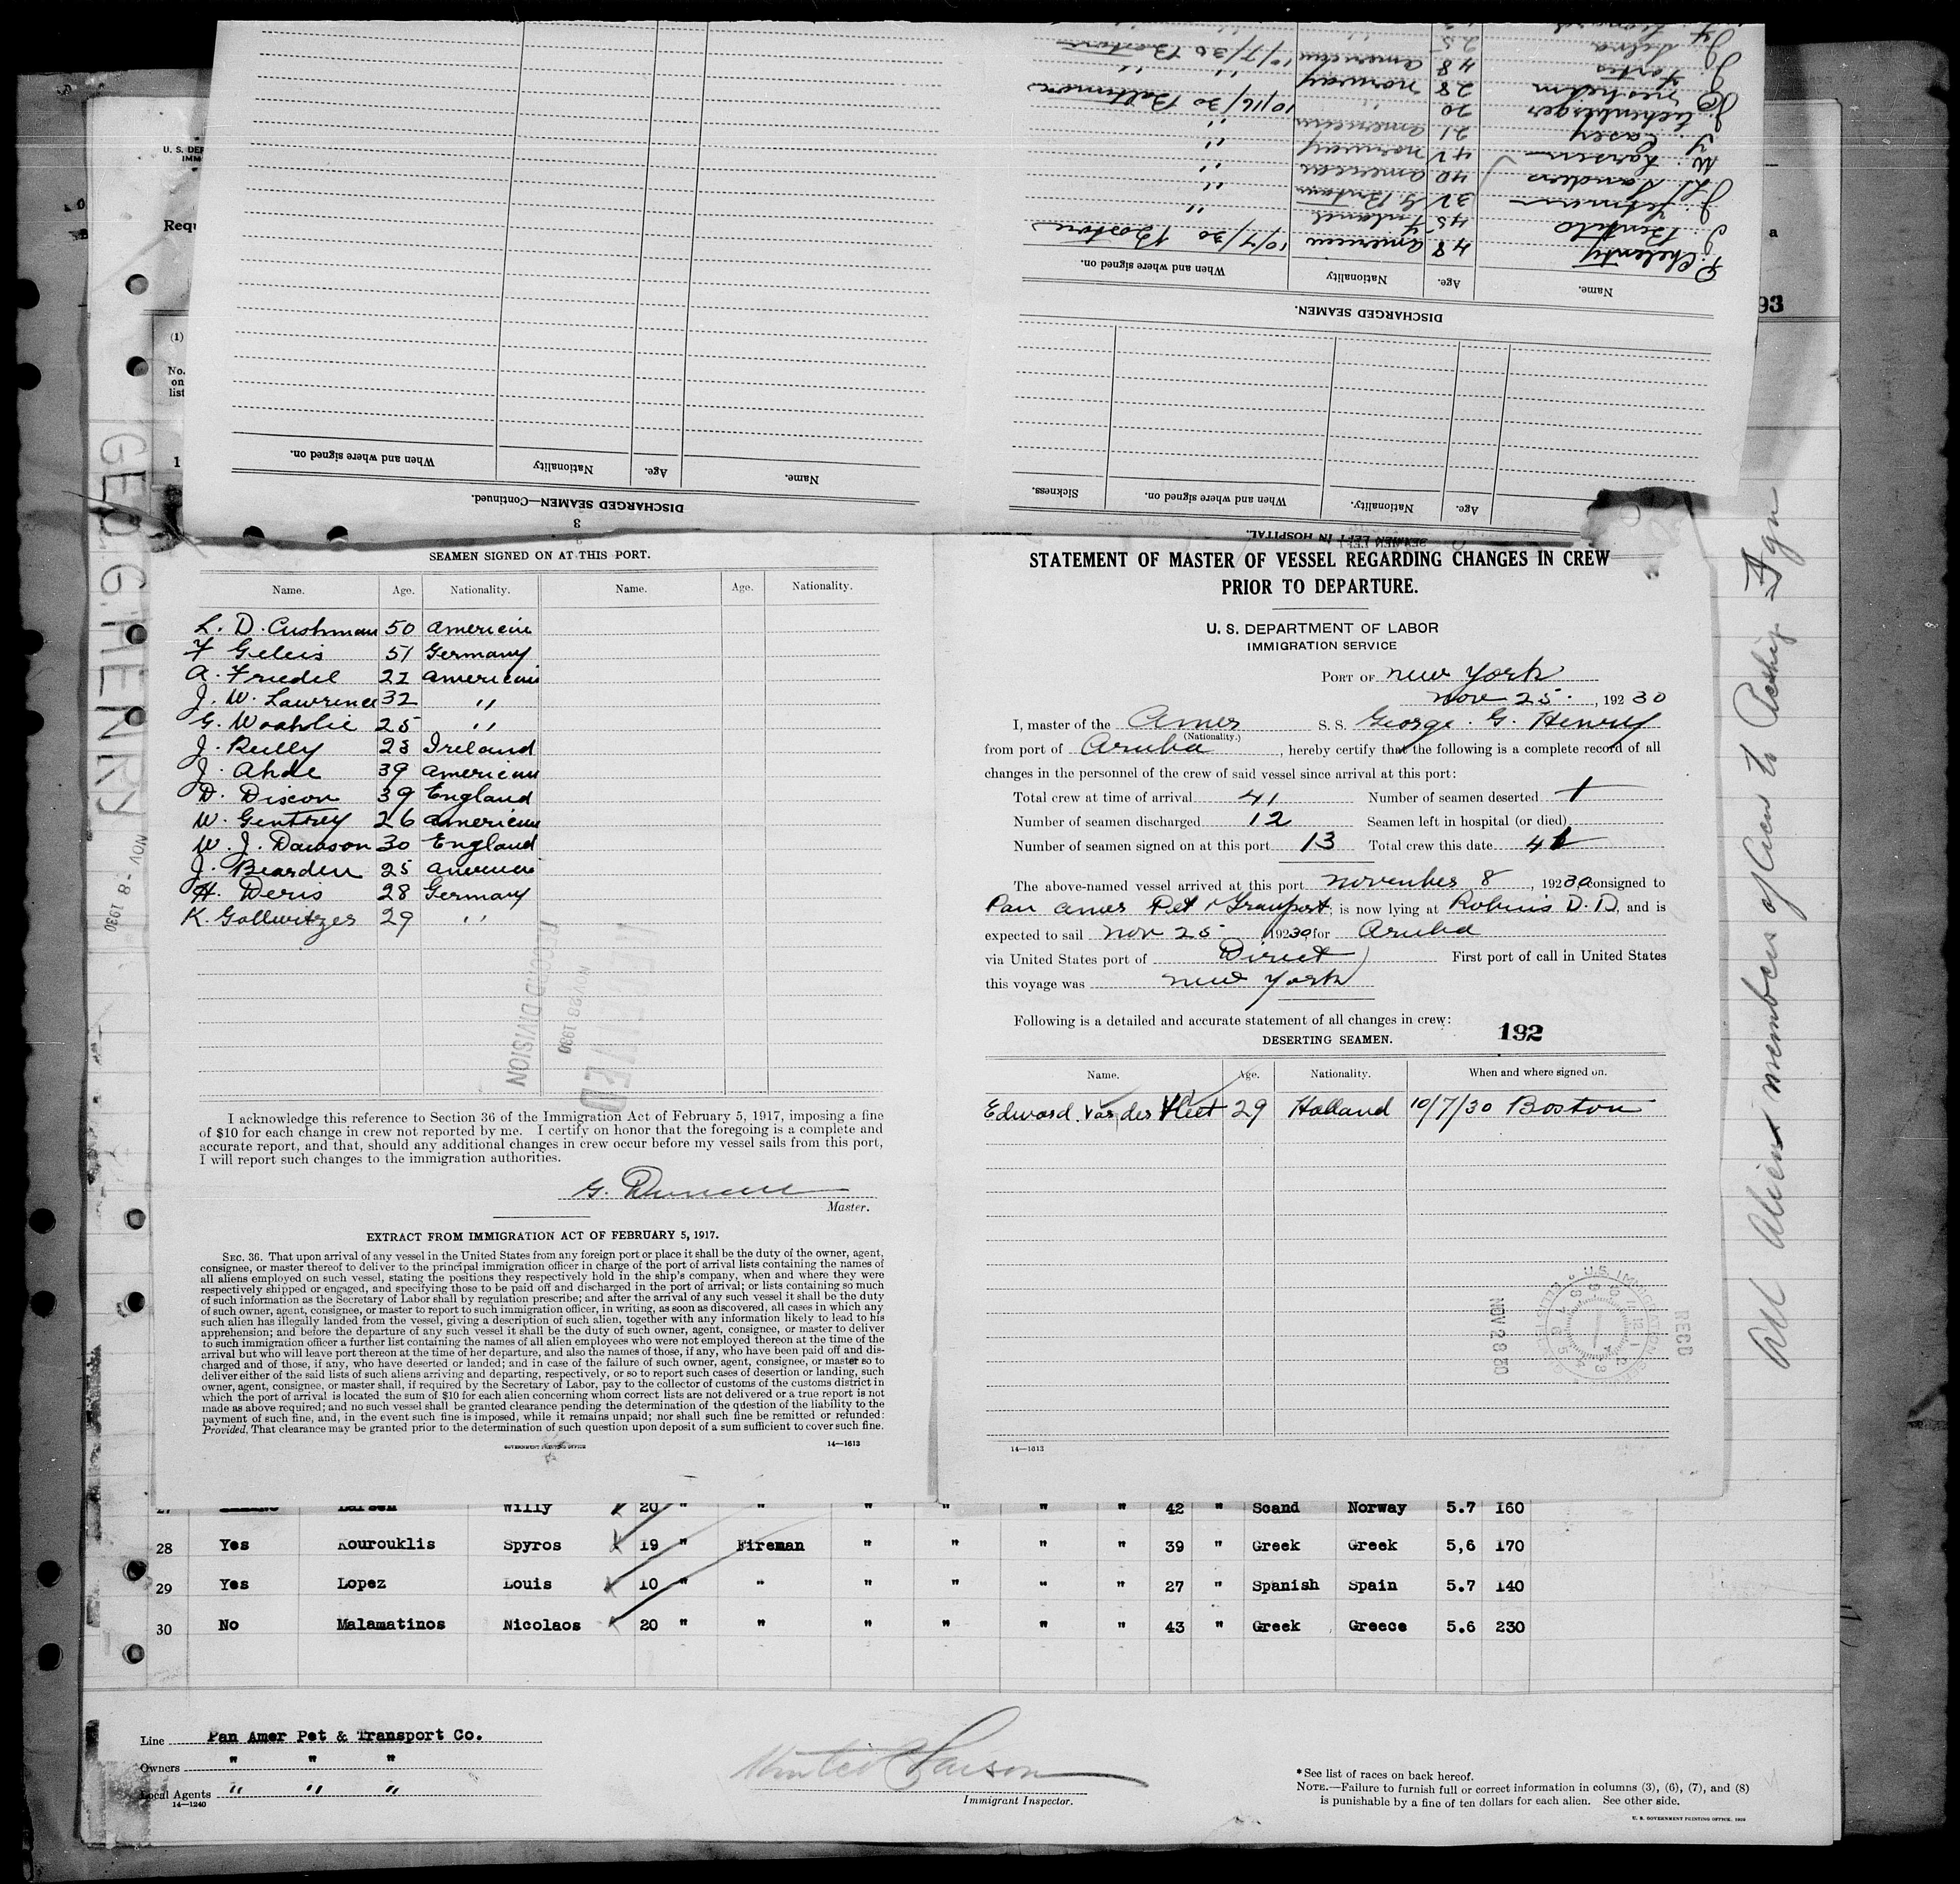 DISCHARGED SEAMEN—Continued.
3
Name. Age. Nationality When and where signed on.
SEAMEN LEFT IN HOSPITAL.
Age. Nationality. When and where signed on. Sickness.
DISCHARGED SEAMEN.
Name. Age. Nationality When and where signed on.
48 American 10/7/30 Boston
J. 45 Finland "
J. 32 G. Britain "
L. Sanders 40 American "
W. Larsen 42 Norway "
Casey 21 American "
20 " 10/16/30 Baltimore
Nesheim 28 Norway " "
J. Fortes 48 American 10/7/30 Boston
Silva 25
U. S. DEP
IMM
Requ
(1)
No.
on
list
1
a
93
GEO. G. HENRY
NOV -8 1930
SEAMEN SIGNED ON AT THIS PORT.
Name. Age. Nationality. Name. Age. Nationality.
L. D. Cushman 50 American
F Geleis 51 Germany
A. Friedel 22 American
J. W. Lawrence 32 "
G. Woehlie 25 "
J. Reilly 23 Ireland
J. Ahde 39 American
D. Discon 39 England
W. Gentrey 26 American
W. J. Dawson 30 England
J. Bearden 25 American
H. Deris 28 Germany
K. Gollwitzer 29 "
RECEIVED
NOV 28 1930
RECORD DIVISION
I acknowledge this reference to Section 36 of the Immigration Act of February 5, 1917, imposing a fine
of $10 for each change in crew not reported by me. I certify on honor that the foregoing is a complete and
accurate report, and that, should any additional changes in crew occur before my vessel sails from this port,
I will report such changes to the immigration authorities.
G. Duncan
Master.
EXTRACT FROM IMMIGRATION ACT OF FEBRUARY 5, 1917.
SEC. 36. That upon arrival of any vessel in the United States from any foreign port or place it shall be the duty of the owner, agent,
consignee, or master thereof to deliver to the principal immigration officer in charge of the port of arrival lists containing the names of
all aliens employed on such vessel, stating the positions they respectively hold in the ship's company, when and where they were
respectively shipped or engaged, and specifying those to be paid off and discharged in the port of arrival; or lists containing so much
of such information as the Secretary of Labor shall by regulation prescribe; and after the arrival of any such vessel it shall be the duty
of such owner, agent, consignee, or master to report to such immigration officer, in writing, as soon as discovered, all cases in which any
such alien has illegally landed from the vessel, giving a description of such alien, together with any information likely to lead to his
apprehension; and before the departure of any such vessel it shall be the duty of such owner, agent, consignee, or master to deliver
to such immigration officer a further list containing the names of all alien employees who were not employed thereon at the time of the
arrival but who will leave port thereon at the time of her departure, and also the names of those, if any, who have been paid off and dis-
charged and of those, if any, who have deserted or landed; and in case of the failure of such owner, agent, consignee, or master so to
deliver either of the said lists of such aliens arriving and departing, respectively, or so to report such cases of desertion or landing, such
owner, agent, consignee, or master shall, if required by the Secretary of Labor, pay to the collector of customs of the customs district in
which the port of arrival is located the sum of $10 for each alien concerning whom correct lists are not delivered or a true report is not
made as above required; and no such vessel shall be granted clearance pending the determination of the question of the liability to the
payment of such fine, and, in the event such fine is imposed, while it remains unpaid; nor shall such fine be remitted or refunded:
Provided, That clearance may be granted prior to the determination of such question upon deposit of a sum sufficient to cover such fine.
GOVERNMENT PRINTING OFFICE 14—1613
STATEMENT OF MASTER OF VESSEL REGARDING CHANGES IN CREW
PRIOR TO DEPARTURE.
U. S. DEPARTMENT OF LABOR
IMMIGRATION SERVICE
PORT OF New York
Nov 25, 192 30
I, master of the Amer S. S. George. G. Henry
(Nationality.)
from port of Aruba, hereby certify that the following is a complete record of all
changes in the personnel of the crew of said vessel since arrival at this port:
Total crew at time of arrival 41 Number of seamen deserted 1
Number of seamen discharged 12 Seamen left in hospital (or died)
Number of seamen signed on at this port 13 Total crew this date 41
The above-named vessel arrived at this port November 8, 1930 consigned to
Pan Amer Pet & Transport, is now lying at Robins D. D, and is
expected to sail Nov 25 19230 for Aruba
via United States port of Direct First port of call in United States
this voyage was New York
Following is a detailed and accurate statement of all changes in crew:
192
DESERTING SEAMEN.
Name. Age. Nationality. When and where signed on.
Edward Van der Vleet 29 Holland 10/7/30 Boston
U.S. IMMIGRATION
NOV 28 30
RECD
14—1613
All Alien members of Crew to Reship Fgn
27 Larsen Willy 20 " " " " " " 42 " Scand Norway 5.7 160
28 Yes Kourouklis Spyros 19 " Fireman " " " " 39 " Greek Greek 5,6 170
29 Yes Lopez Louis 10 " " " " " " 27 " Spanish Spain 5.7 140
30 No Malamatinos Nicolaos 20 " " " " " " 43 " Greek Greece 5.6 230
Line Pan Amer Pet & Transport Co.
Owners " " "
Local Agents " " "
14—1240
Immigrant Inspector.
* See list of races on back hereof.
NOTE.—Failure to furnish full or correct information in columns (3), (6), (7), and (8)
is punishable by a fine of ten dollars for each alien. See other side.
U. S. GOVERNMENT PRINTING OFFICE